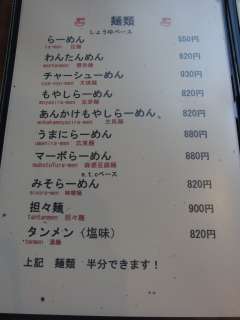 麺類
しょうゆベース
らーめん 550円
ra-men 拉麺
わんたんめん 820円
wantanmen 雲呑麺
チャーシューめん 930円
もやしらーめん 820円
moyasira-men
あんかけもやしらーめん 820円
うまにらーめん 880円
umanira-men
マーボらーめん 880円
e.t.cベース
みそらーめん 820円
misora-men 味噌麺
担々麺 900円
tantanmen 担々麺
タンメン（塩味） 820円
tanmen 湯麺
上記 麺類 半分できます！